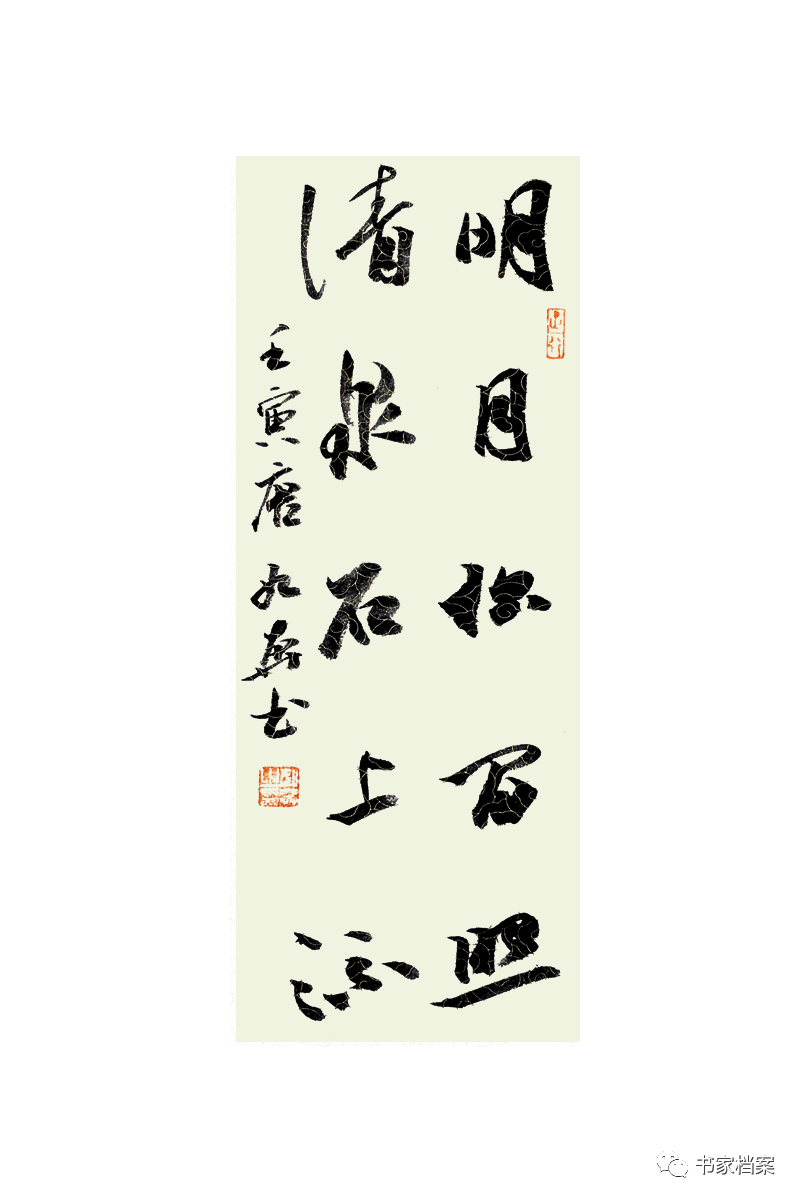 明月松间照
清泉石上流
壬寅唐书
书家档案